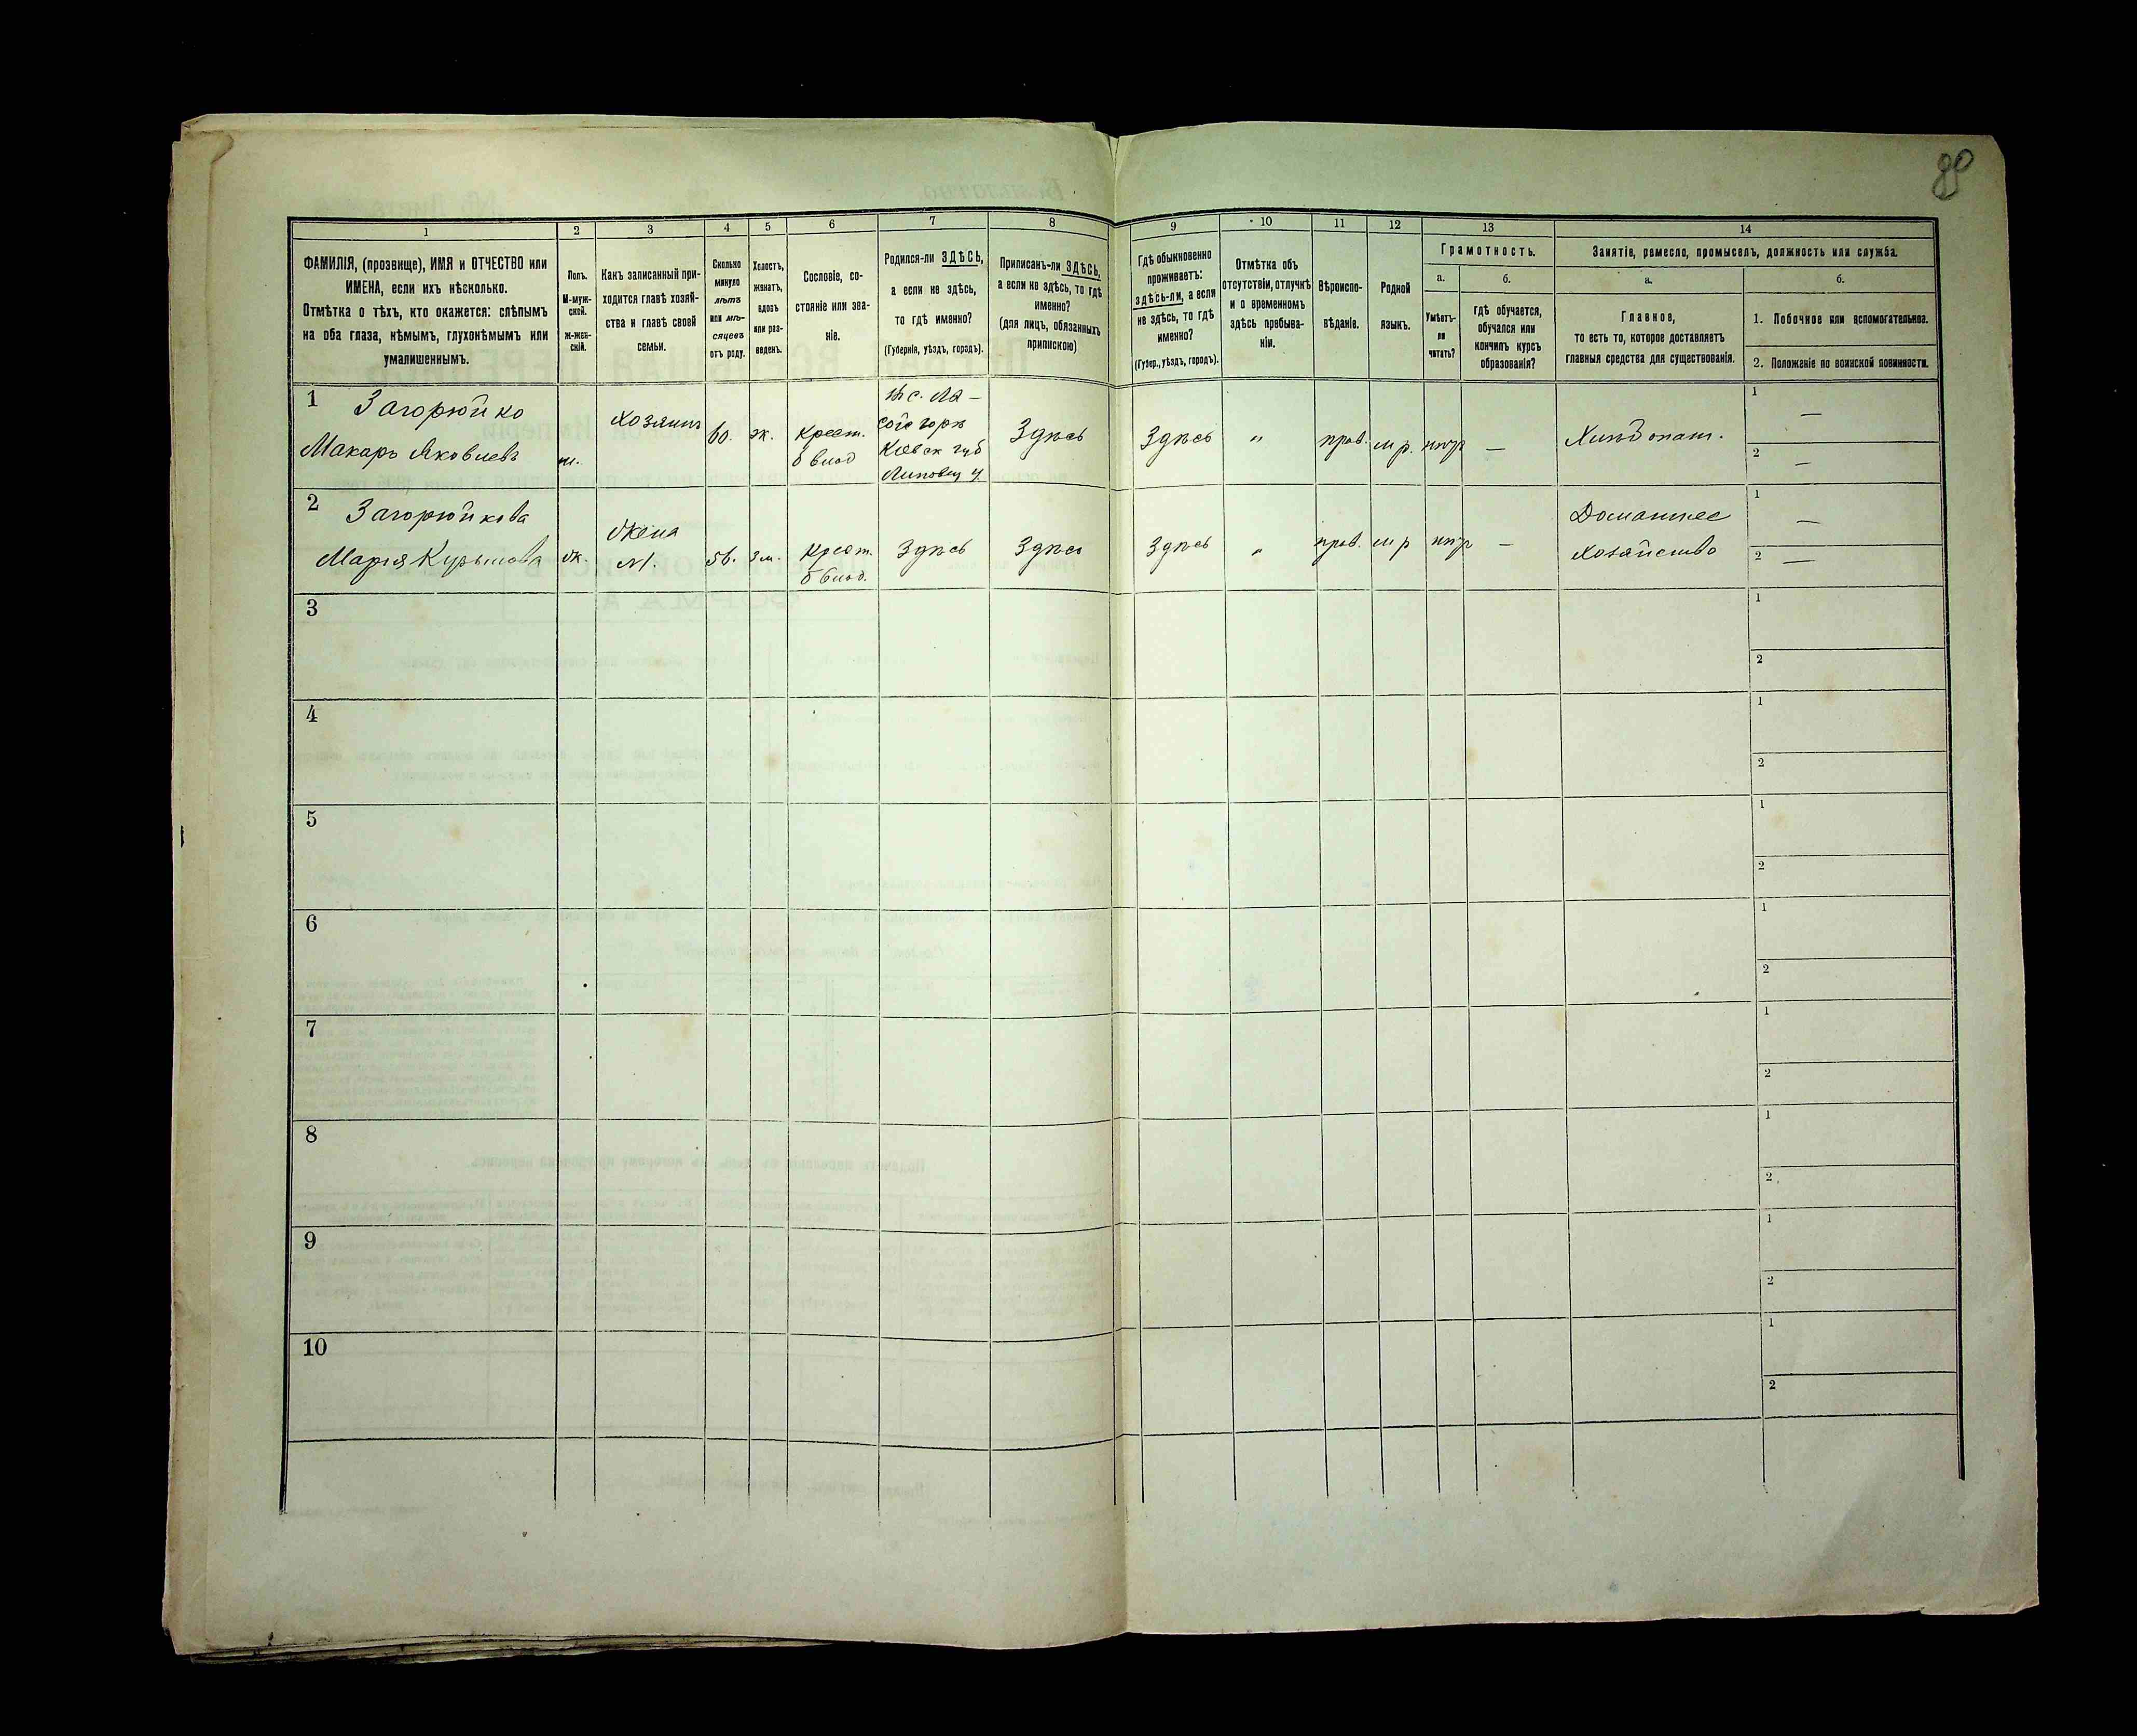 80
1 2 3 4 5 6 7 8 9 10 11 12 13 14
ФАМИЛІЯ, (прозвище), ИМЯ и ОТЧЕСТВО или
ИМЕНА, если ихъ нѣсколько.
Отмѣтка о тѣхъ, кто окажется: слѣпымъ
на оба глаза, нѣмымъ, глухонѣмымъ или
умалишеннымъ.
Полъ.
М-муж-
ской.
Ж-жен-
скій.
Какъ записанный при-
ходится главѣ хозяй-
ства и главѣ своей
семьи.
Сколько
минуло
лѣтъ
или мѣ-
сяцевъ
отъ роду.
Холостъ,
женатъ,
вдовъ
или раз-
веденъ.
Сословіе, со-
стояніе или зва-
ніе.
Родился-ли ЗДѢСЬ,
а если не здѣсь,
то гдѣ именно?
(Губернія, уѣздъ, городъ).
Приписанъ-ли ЗДѢСЬ,
а если не здѣсь, то гдѣ
именно?
(для лицъ, обязанныхъ
припискою)
Гдѣ обыкновенно
проживаетъ:
здѣсь-ли, а если
не здѣсь, то гдѣ
именно?
(Губер., уѣздъ, городъ).
Отмѣтка объ
отсутствіи, отлучкѣ
и о временномъ
здѣсь пребыва-
ніи.
Вѣроиспо-
вѣданіе.
Родной
языкъ.
Грамотность.
а.
Умѣетъ-
ли
читать?
б.
гдѣ обучается,
обучался или
кончилъ курсъ
образованія?
Занятіе, ремесло, промыселъ, должность или служба.
а.
Главное,
то есть то, которое доставляетъ
главныя средства для существованія.
б.
1. Побочное или вспомогательное.
2. Положеніе по воинской повинности.
1 Загорюйко
Макаръ Яковлевъ
м.
хозяинъ
60.
ж.
Крест.
б влад
с. Лы-
сой горѣ
Кіевск губ
Липовец у.
Здѣсь
Здѣсь
"
прав.
м р.
нѣтъ
—
Хлѣбопаш.
1 —
2 —
2 Загорюйкова
Марія
ж.
Жена
56.
зм.
Крест.
б влад.
Здѣсь
Здѣсь
Здѣсь
"
прав.
м р
нѣтъ
—
Домашнее
хозяйство
1 —
2 —
3
1
2
4
1
2
5
1
2
6
1
2
7
1
2
8
1
2
9
1
2
10
1
2